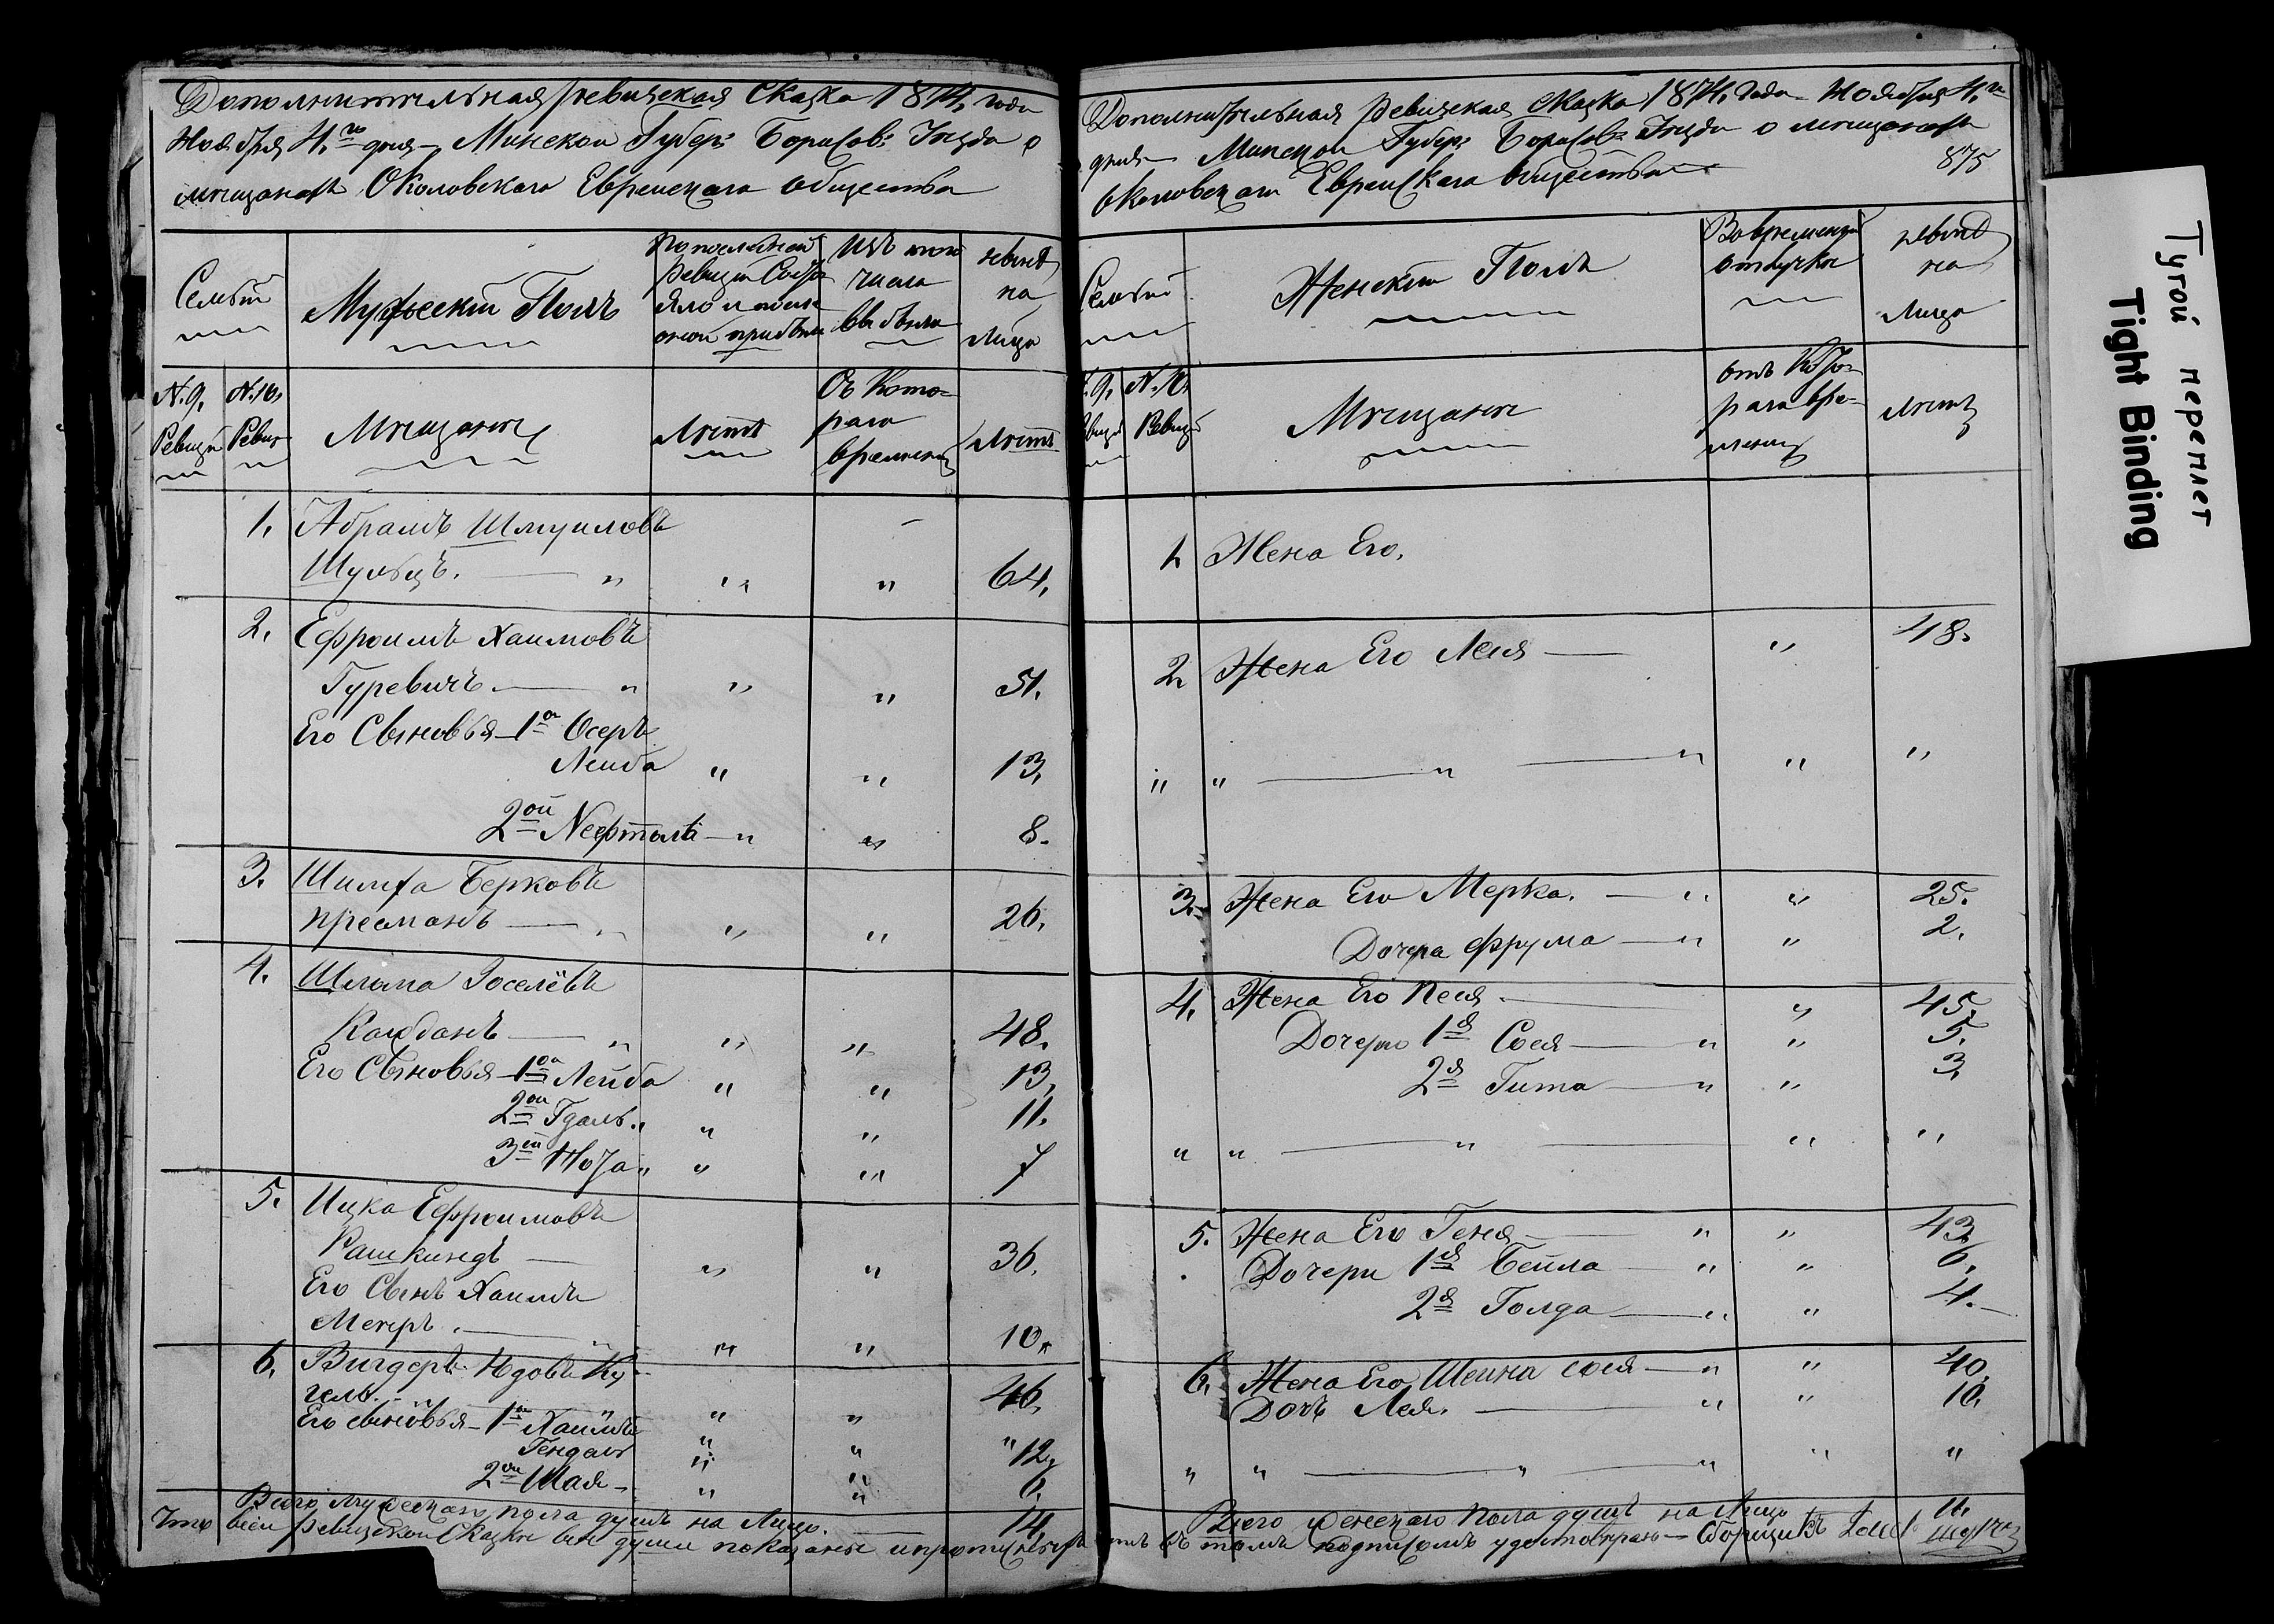 Дополнительная ревизская сказка 1874. года
Ноября 4.го дня Минской Губер: Борисов: Уезда о
мещанахъ Околовскаго Еврейскаго общества
Семьи
Мужескій Полъ
По последней ревизіи состояло и после оной прибыли
Изъ того числа выбыло
на Лицо
N. 9. Ревизіи
N. 10. Ревиз
Мещане
Летъ
Съ Кото-
раго
времени
Летъ
1. Абрамъ Шмуиловъ
Шульцъ. — " " " 64.
2. Ефроимъ Хаимовъ
Гуревичъ. — " " " 51.
Его Сыновья 1й Осеръ
Лейба " " 13.
2ой Нефталь — " " 8.
3. Шимха Берковъ
Пресманъ — " " " 26.
4. Шлома Іоселевъ
Калбанъ — " " " 48.
Его Сыновья 1ой Лейба " " 13.
2ой Гдаль. " " " 11.
3ій Нота " " " 7
5. Ицка Ефроимовъ
Рашкиндъ — " " 36.
Его Сынъ Хаимъ
Меиръ. — " " " 10.
6. Вигдеръ Идовъ Ку-
гель. — " " " 46.
Его сыновья 1й Хаимъ
Гендаль " " " 12.
2ой Шая — " " 6.
Всего мужескаго пола душъ на Лицо. 14.
Что в сей ревизской Сказке все души показаны и
Дополнительная ревизская сказка 1874. года Ноября 4.го
дня Минской Губер: Борисов: Уезда о мещанахъ
875
Околовскаго Еврейскаго общества
Семьи
Женскій Полъ
Во временной
отлучке
на
Лицо
9. Ревизіи
N. 10. Ревизіи
Мещане
отъ Кото-
раго вре-
мени
Летъ
1. Жена Его.
2. Жена Его Лея — " 48.
" " — " — " " "
3. Жена Его Мерка. — " " 25.
Дочера Фрума — " " 2.
4. Жена Его Песя. — " 45.
Дочери 1я Сося — " " 5.
2я Гита — " " 3.
" " — " — " "
5. Жена Его Геня — " " 43.
Дочери 1я Бейла — " " 6.
2я Голда — " " 4.
6. Жена Его Шейна Сося — " " 40.
Дочь Лея. — " " 10.
" " — " — " " "
Всего женскаго пола душъ на Лицо 11.
въ томъ подписомъ удостоверяю — Сборщикъ
Тугой переплет
Tight Binding